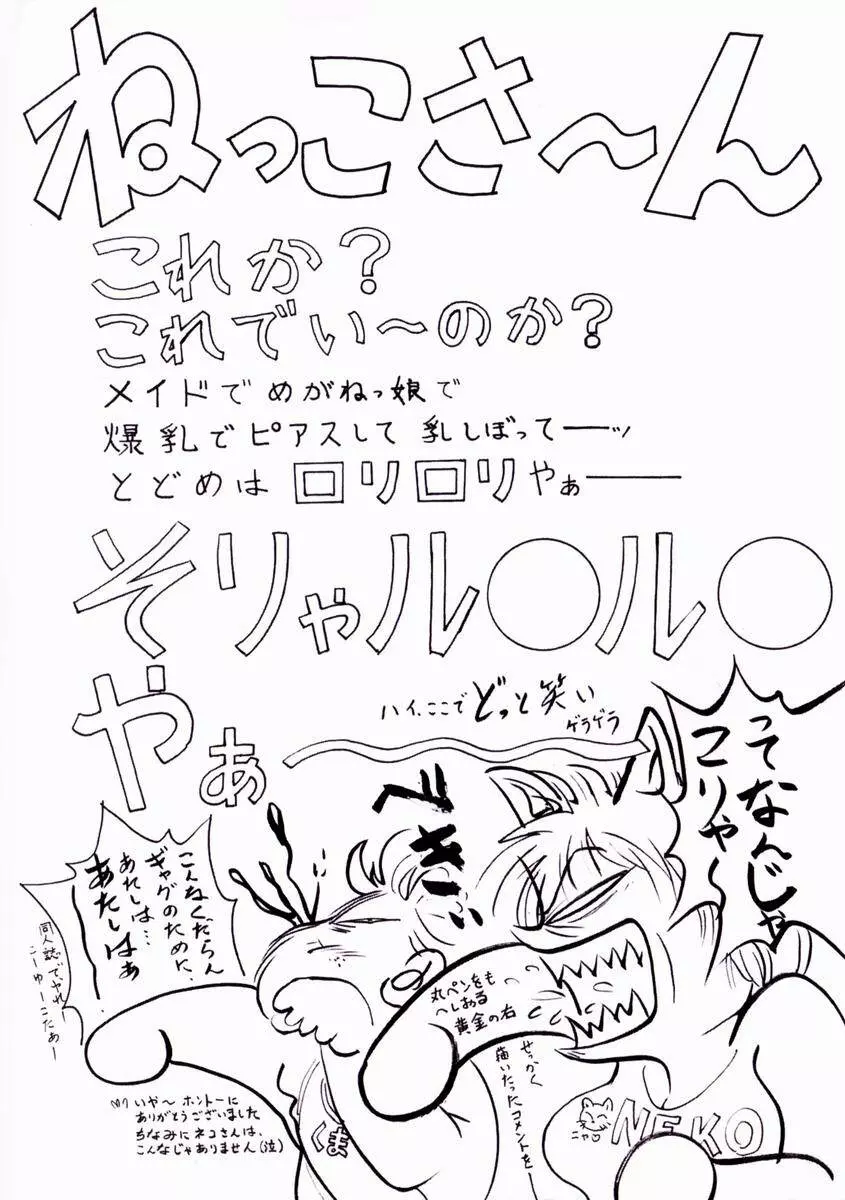 ねっこさ～ん
これか？
これでい～のか？
メイドでめがねっ娘で
爆乳でピアスして乳しぼってーッ
とどめはロリロリやぁ――
そりゃル〇ル〇
やぁ
ハイ、ここでどっと笑い
ゲラゲラ
こりゃ～
っそなんじゃ
こんなくだらん
ギャグのために、
あたしは…
あたしはぁ
同人誌でやれ
こーゆーこたぁー
丸ペンをも
へしおる
黄金の右
せっかく
描いたったコメントをー
いや～ホントーに
ありがとうございました
ちなみにネコさんは、
こんなじゃありません(泣)
くま
ニャ♡
NEKO